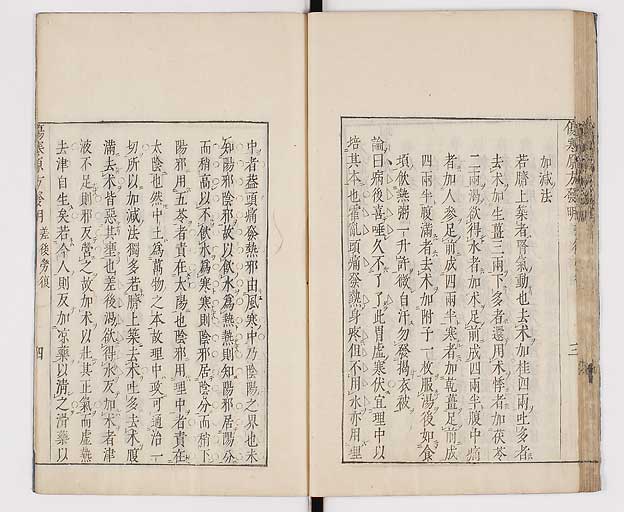 加減法
若臍上築者腎氣動也去朮加桂四兩吐多者
去朮加生薑三兩下多者還用朮悸者加茯苓
二兩渴欲得水者加朮足前成四兩半腹中痛
者加人參足前成四兩半寒者加乾薑足前成
四兩半腹滿者去朮加附子一枚服湯後如食
頃飲熱粥一升許微自汗勿發揭衣被
論曰病後喜唾久不了了此胃虛寒伏宜理中以
培其本也霍亂頭痛發熱身疼但不用水亦用理
三
中者蓋頭痛發熱邪由風寒中乃陰陽之界也未
知陽邪陰邪故以飲水為熱熱則知陽邪居陽分
而稍高以不飲水為寒寒則陰邪居陰分而稍下
陽邪用五苓者責在太陽也陰邪用理中者責在
太陰也然中土為萬物之本故理中更可通治一
切所以加減法獨多若臍上築去朮吐多去朮腹
滿去朮皆惡其壅也差後渴欲得水反加朮者津
液不足則邪反營之故加朮以壯其正氣而虛熱
去津自生矣若今人則反加涼藥以清之滑藥以
傷寒原方發明
差後勞復
四